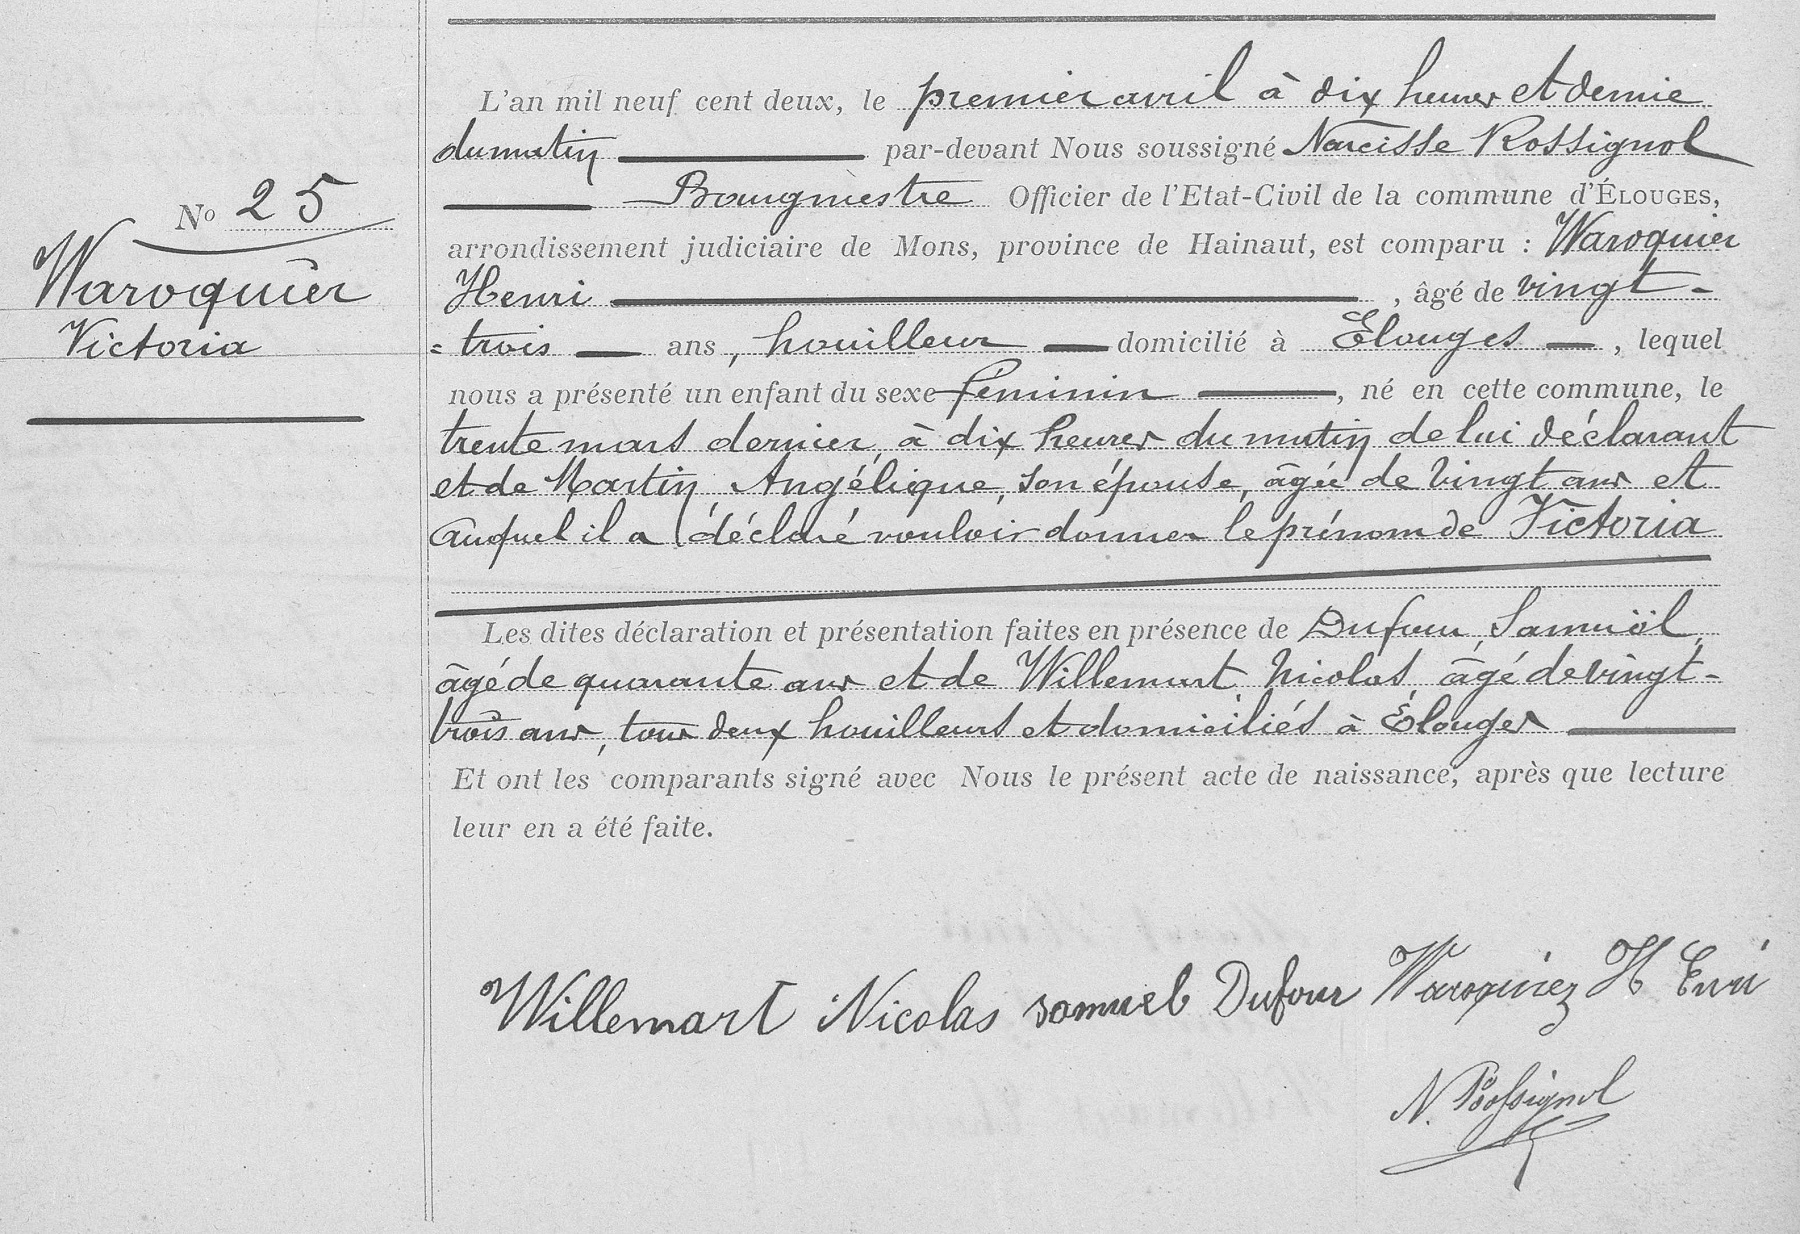 N° 25
Waroquier
Victoria
L'an mil neuf cent deux, le premier avril à dix heures et demie
du matin par-devant Nous soussigné Narcisse Rossignol
Bourgmestre Officier de l'Etat-Civil de la commune d'ÉLOUGES,
arrondissement judiciaire de Mons, province de Hainaut, est comparu : Waroquier
Henri , âgé de vingt-
= trois ans, houilleur domicilié à Élouges , lequel
nous a présenté un enfant du sexe féminin , né en cette commune, le
trente mars dernier, à dix heures du matin de lui déclarant
et de Martin, Angélique, son épouse, âgée de vingt ans et
auquel il a déclaré vouloir donner le prénom de Victoria
Les dites déclaration et présentation faites en présence de Dufour, Samuël,
âgé de quarante ans et de Willemart, Nicolas, âgé de vingt-
trois ans, tous deux houilleurs et domiciliés à Élouges
Et ont les comparants signé avec Nous le présent acte de naissance, après que lecture
leur en a été faite.
Willemart Nicolas samuel Dufour Waroquiez H Enri
N. Rossignol